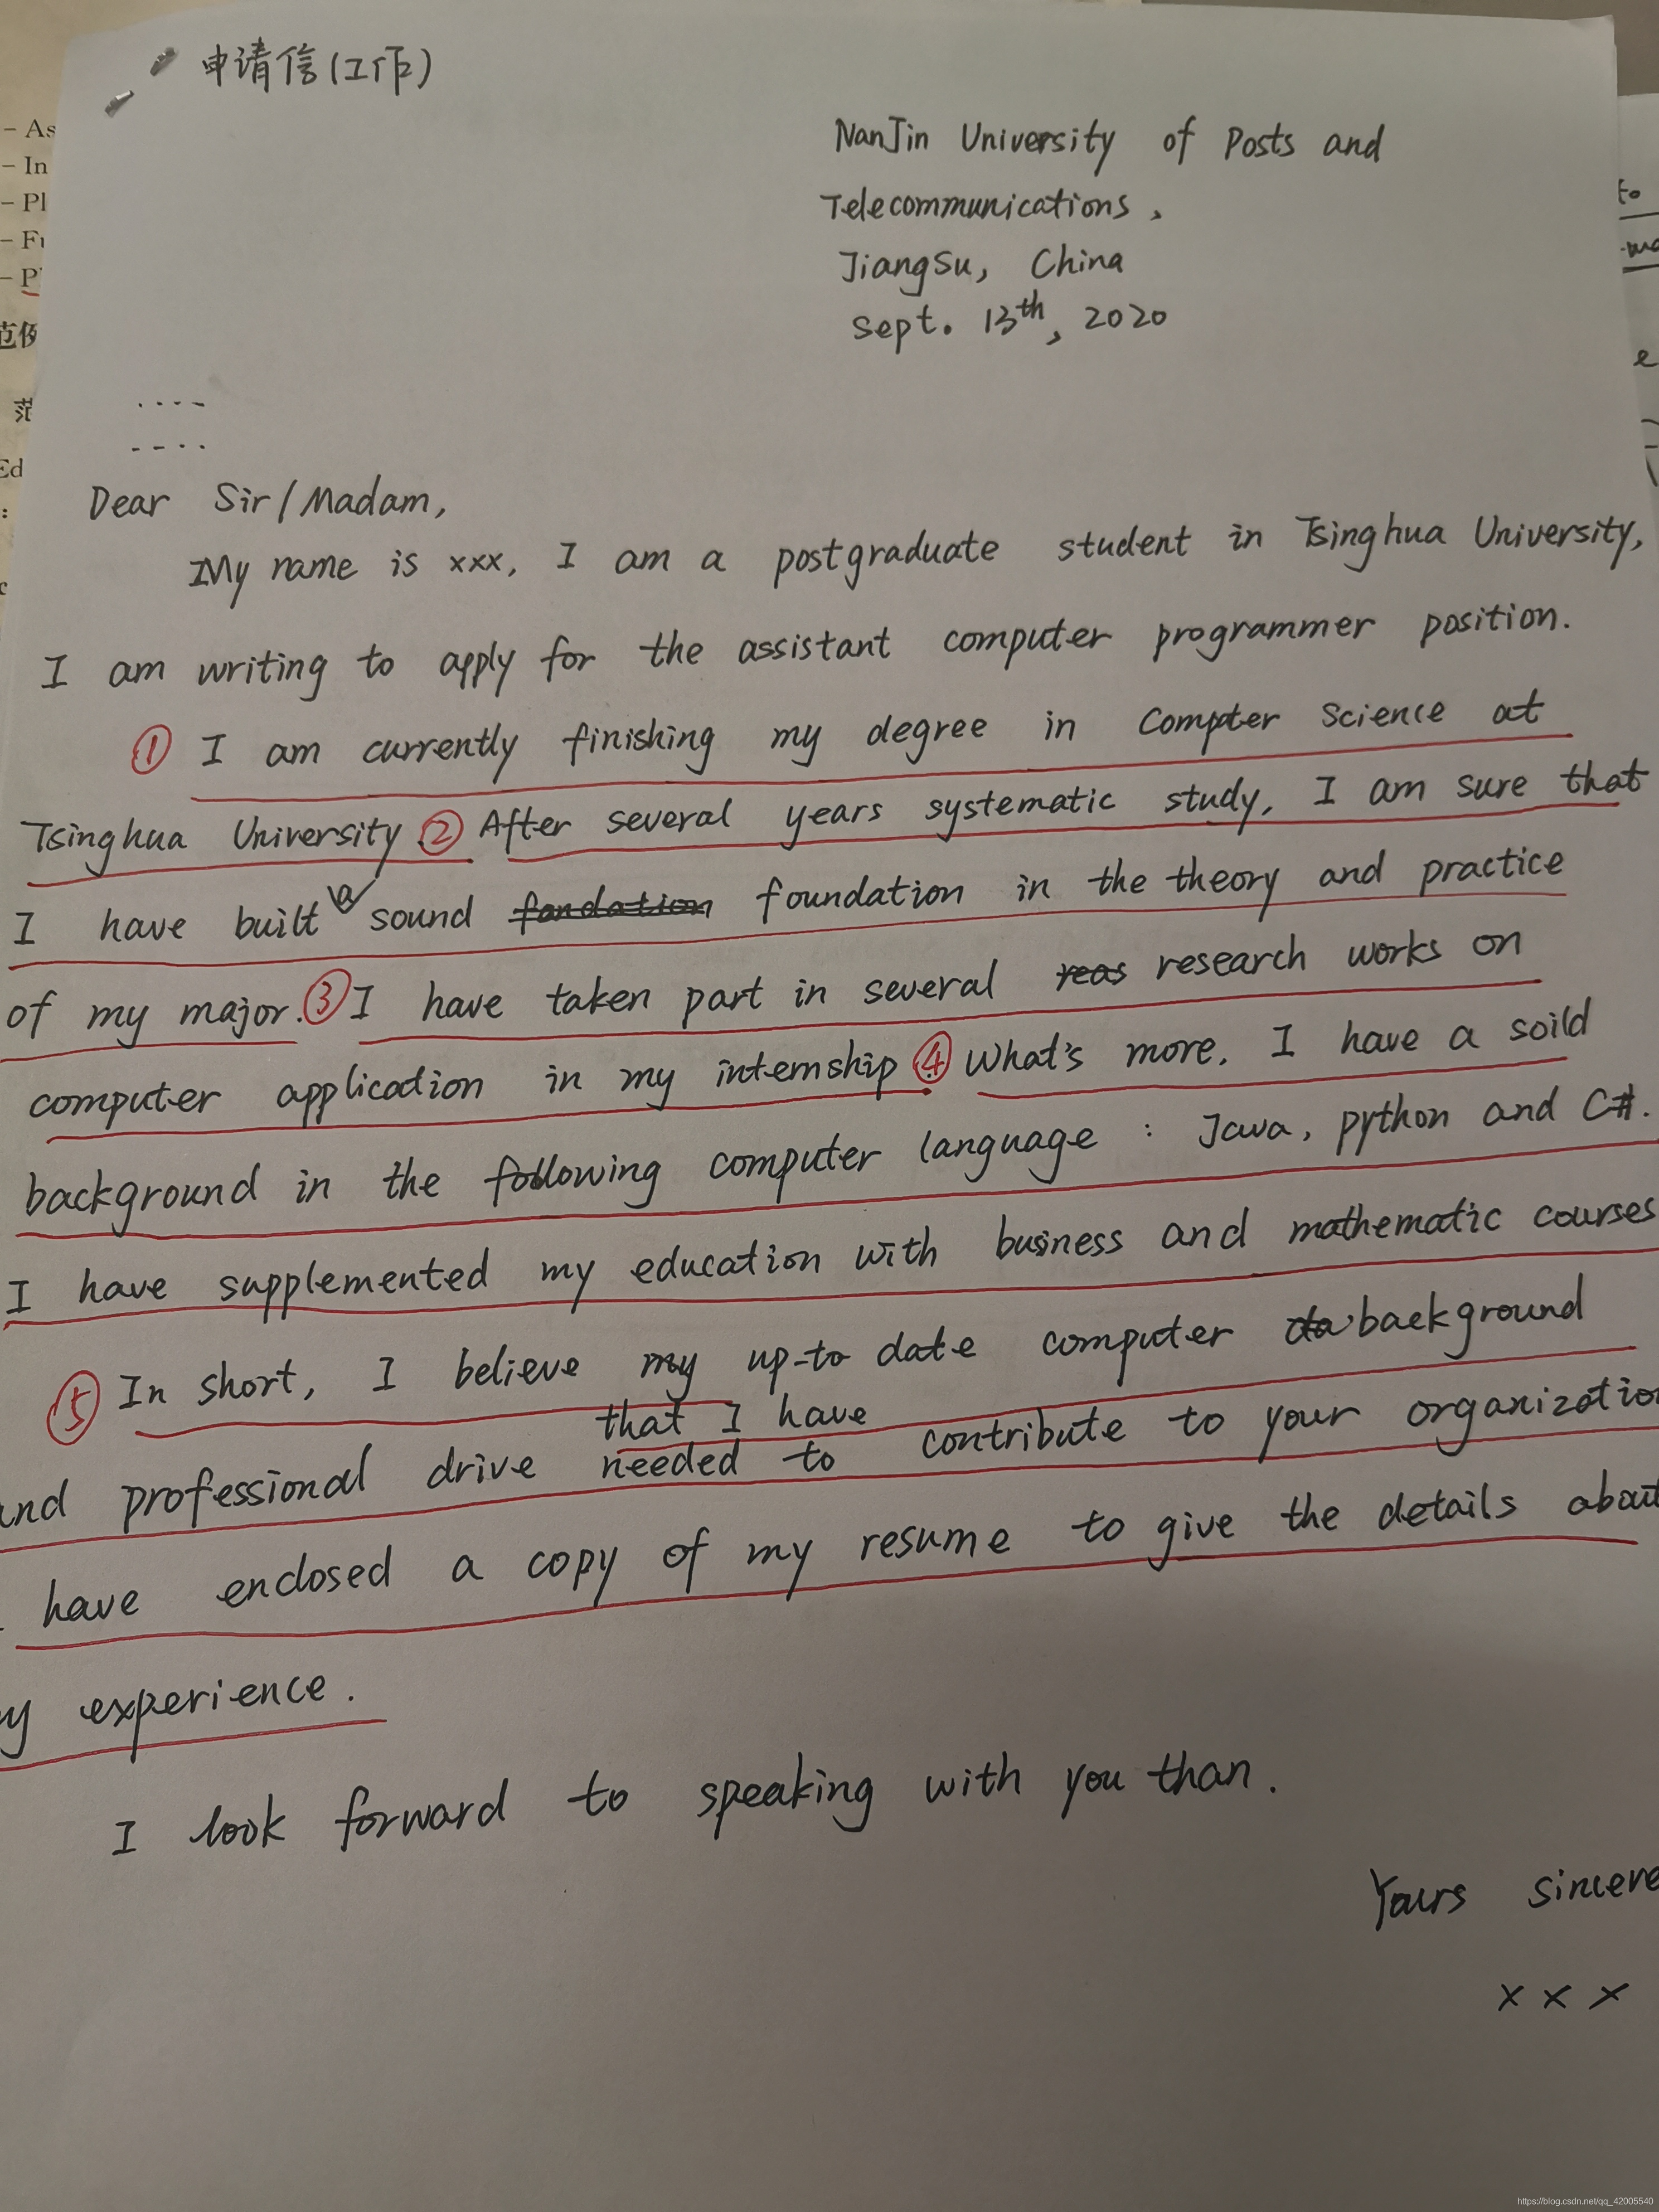 申请信(工作)
- As
- In
- Pl
- Fu
- P
范例
范
Ed
NanJin University of Posts and
Telecommunications,
JiangSu, China
Sept. 13th, 2020
to
e
Dear Sir/Madam,
My name is xxx, I am a postgraduate student in Tsinghua University,
I am writing to apply for the assistant computer programmer position.
① I am currently finishing my degree in Compter Science at
Tsinghua University. ② After several years systematic study, I am sure that
I have built a sound foundation in the theory and practice
of my major. ③ I have taken part in several research works on
computer application in my internship ④ What's more, I have a soild
background in the following computer language : Java, python and C#.
I have supplemented my education with business and mathematic courses
⑤ In short, I believe my up-to date computer background
that I have
and professional drive needed to contribute to your organizatio
have enclosed a copy of my resume to give the details about
y experience.
I look forward to speaking with you than.
Yours sincere
x x x
https://blog.csdn.net/qq_42005540